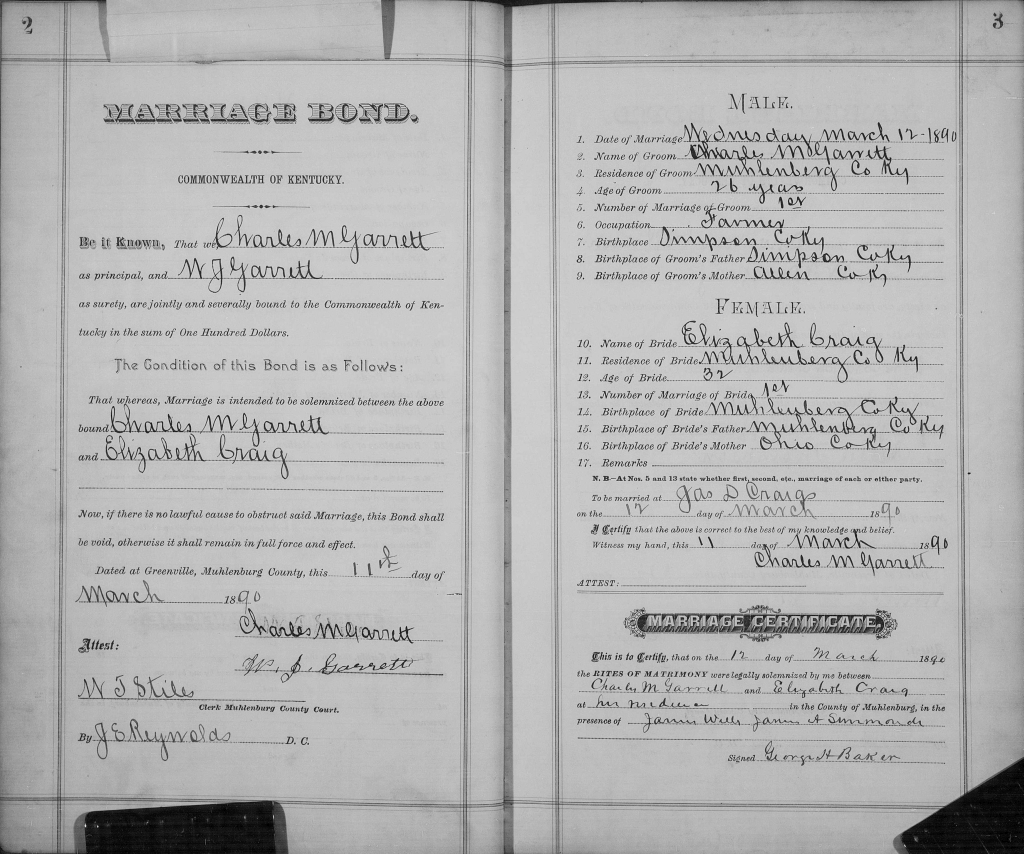 2
MARRIAGE BOND.
COMMONWEALTH OF KENTUCKY.
Be it Known, That we Charles M Garrett
as principal, and W J Garrett
as surety, are jointly and severally bound to the Commonwealth of Ken-
tucky in the sum of One Hundred Dollars.
The Condition of this Bond is as Follows:
That whereas, Marriage is intended to be solemnized between the above
bound Charles M Garrett
and Elizabeth Craig
Now, if there is no lawful cause to obstruct said Marriage, this Bond shall
be void, otherwise it shall remain in full force and effect.
Dated at Greenville, Muhlenburg County, this 11th day of
March 1890
Charles M Garrett
Attest:
W. J. Garrett
W T Stiles
Clerk Muhlenburg County Court.
By J E Reynolds D. C.
3
MALE.
1. Date of Marriage Wednesday March 12-1890
2. Name of Groom Charles M Garrett
3. Residence of Groom Muhlenberg Co Ky
4. Age of Groom 26 years
5. Number of Marriage of Groom 1st
6. Occupation Farmer
7. Birthplace Simpson Co Ky
8. Birthplace of Groom's Father Simpson Co Ky
9. Birthplace of Groom's Mother Allen Co Ky
FEMALE.
10. Name of Bride Elizabeth Craig
11. Residence of Bride Muhlenberg Co Ky
12. Age of Bride 32
13. Number of Marriage of Bride 1st
14. Birthplace of Bride Muhlenberg Co Ky
15. Birthplace of Bride's Father Muhlenberg Co Ky
16. Birthplace of Bride's Mother Ohio Co Ky
17. Remarks
N. B.—At Nos. 5 and 13 state whether first, second, etc., marriage of each or either party.
To be married at Jas D Craigs
on the 12 day of March 1890
I Certify that the above is correct to the best of my knowledge and belief.
Witness my hand, this 11 day of March 1890
Charles M Garrett
ATTEST:
MARRIAGE CERTIFICATE.
This is to Certify, that on the 12 day of March 1890
the RITES OF MATRIMONY were legally solemnized by me between
Charles M Garrett and Elizabeth Craig
at in the County of Muhlenburg, in the
presence of James Wells James A Simmonds
Signed George H Baker